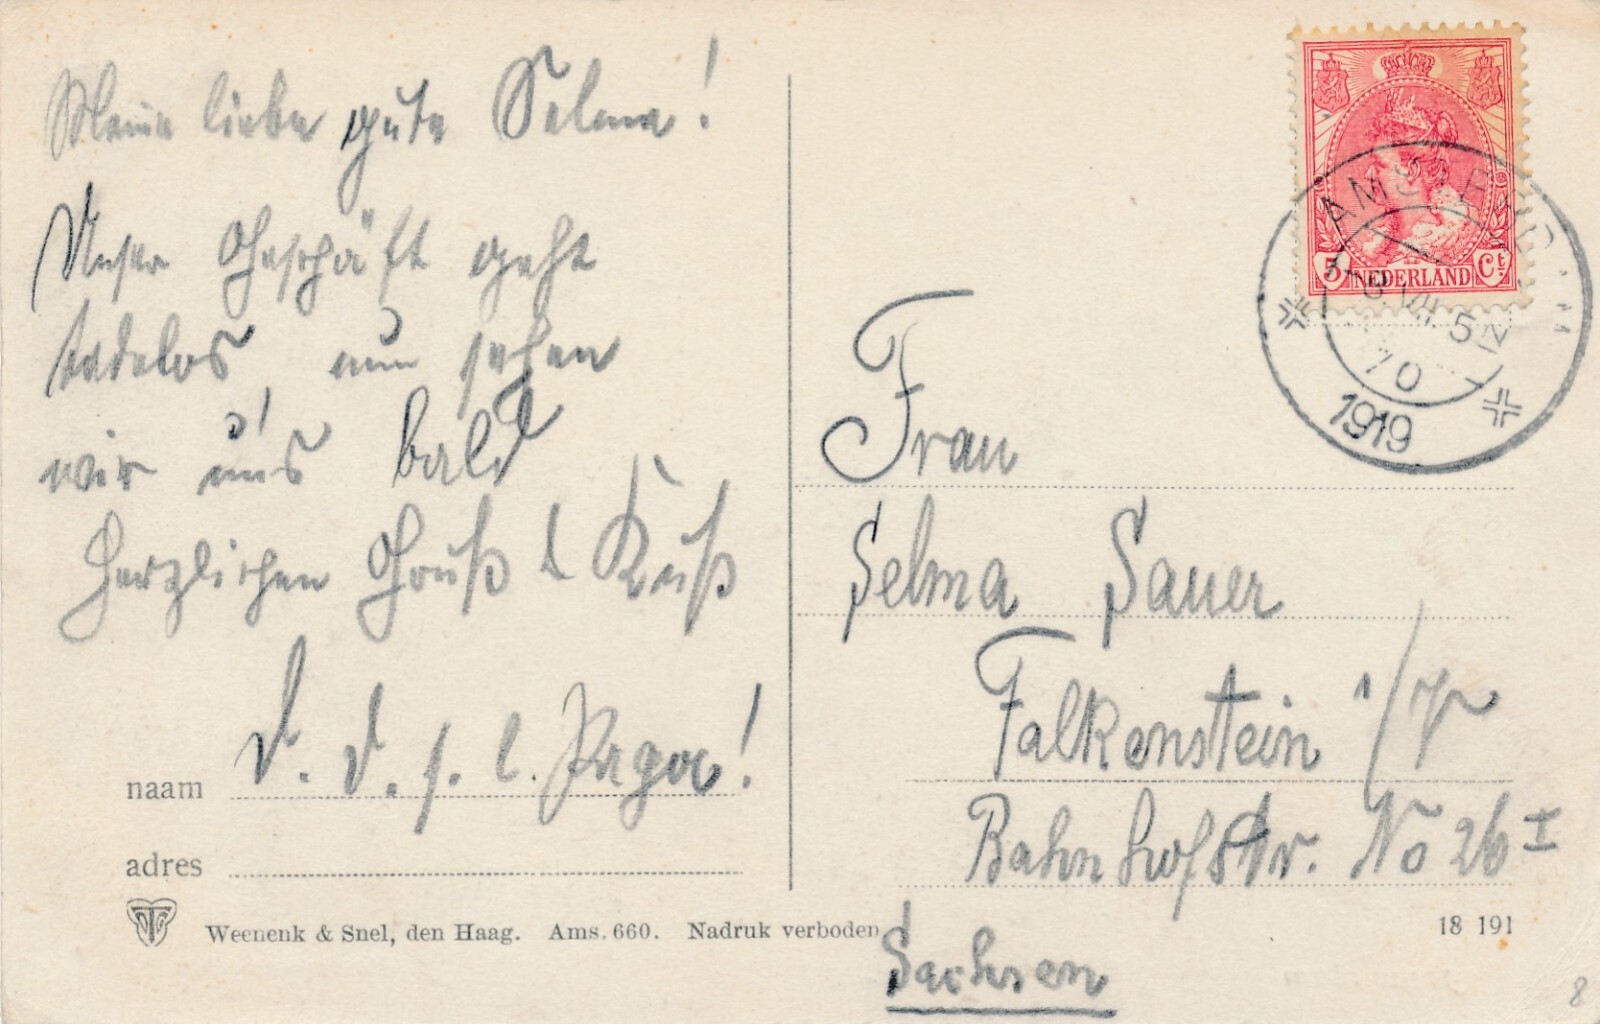 Meine liebe gute Selma!
Unser Geschäft geht
tadelos nun sehen
wir uns bald
Herzlichen Gruß & Kuß
D. D. s. l.
naam
adres
Weenenk & Snel, den Haag. Ams. 660. Nadruk verboden
5 NEDERLAND Ct
AMSTERD
8 VII 5 N
1919
Frau
Selma Sauer
Falkenstein i/V
Bahnhofstr. No 26 I
Sachsen
18 191
8